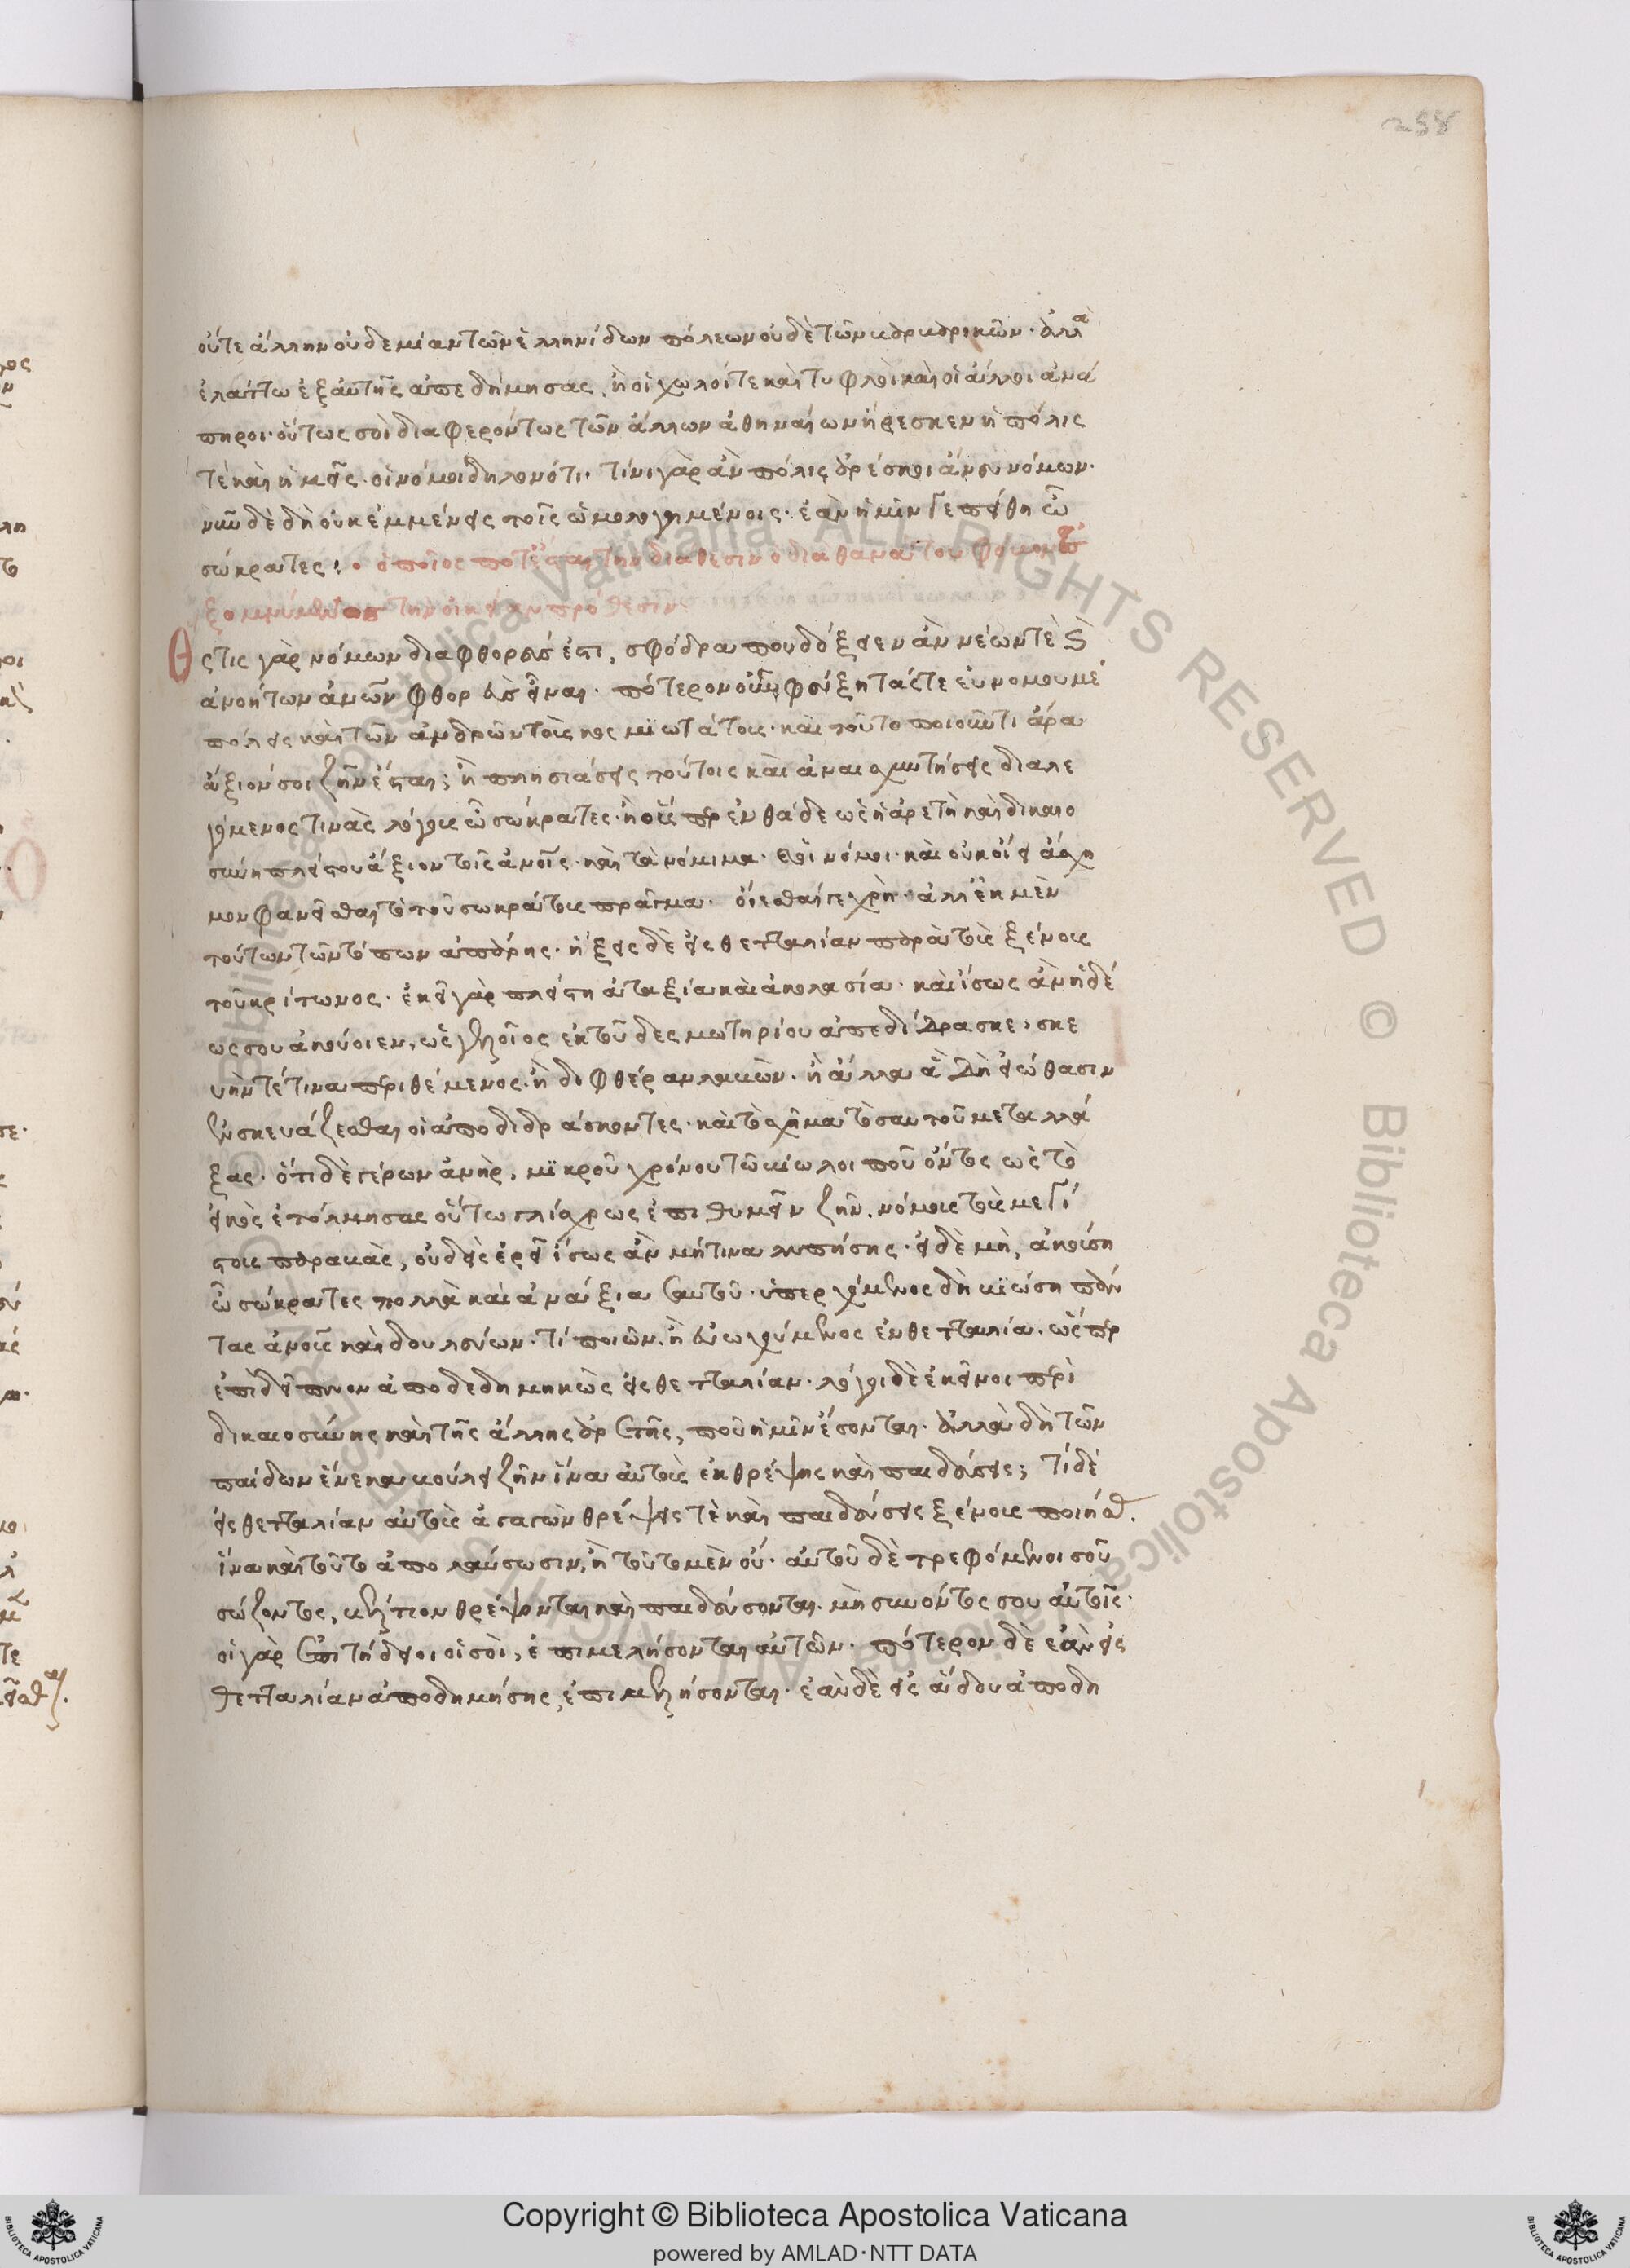 258
οὔτε ἄλλην οὐδεμίαν τῶν ἑλληνίδων πόλεων οὐδὲ τῶν βαρβαρικῶν· ἀλλὰ
ἐλάττω ἐξ αὐτῆς ἀπεδήμησας, ἢ οἱ χωλοί τε καὶ τυφλοὶ καὶ οἱ ἄλλοι ἀνά
πηροι· οὕτως σοὶ διαφερόντως τῶν ἄλλων ἀθηναίων ἤρεσκεν ἡ πόλις
τὲ καὶ ἡμεῖς οἱ νόμοι δηλονότι· τίνι γὰρ ἂν πόλις ἀρέσκοι ἄνευ νόμων·
νῦν δὲ δὴ οὐκ ἐμμένεις τοῖς ὡμολογημένοις· ἐὰν ἡμῖν γε πείθῃ ὦ
σώκρατες·
ὁποῖος ποτ' ἔσται τὴν διάθεσιν ὁ διὰ θανάτου φόβον
τὴν οἰκείαν πρόθεσιν
στις γὰρ νόμων διαφθορεύς ἐστι, σφόδρα που δόξειεν ἂν νέων τὲ καὶ
ἀνοήτων ἀνων φθορεὺς εἶναι· πότερον οὖν φεύξῃ τάς τε εὐνομουμέ
πόλεις καὶ τῶν ἀνδρῶν τοὺς κοσμιωτάτους· καὶ τοῦτο ποιοῦντι ἆρα
ἄξιόν σοι ζῆν ἔσται; ἢ πλησιάσεις τούτοις καὶ ἀναισχυντήσεις διαλε
γόμενος τίνας λόγους ὦ σώκρατες· ἢ οὕσπερ ἐνθάδε ὡς ἡ ἀρετὴ καὶ δικαιο
σύνη πλείστου ἄξιον τοῖς ἀνοις· καὶ τὰ νόμιμα· καὶ οἱ νόμοι· καὶ οὐκ οἴει ἄσχη
μον φανεῖσθαι τὸ τοῦ σωκράτους πρᾶγμα· οἴεσθαί γε χρή· ἀλλ' ἐκ μὲν
τούτων τῶν τόπων ἀπαρεῖς· ἥξεις δὲ εἰς θετταλίαν παρὰ τοὺς ξένους
τοῦ κρίτωνος· ἐκεῖ γὰρ πλείστη ἀταξία καὶ ἀκολασία· καὶ ἴσως ἂν ἡδέ
ως σου ἀκούοιεν, ὡς γελοῖος ἐκ τοῦ δεσμωτηρίου ἀπεδίδρασκε, σκε
υήν τέ τινα περιθέμενος· ἢ διφθέραν λαβὼν· ἢ ἄλλα ἃ δὴ εἰώθασιν
ἐνσκευάζεσθαι οἱ ἀποδιδράσκοντες· καὶ τὸ σχῆμα τὸ σαυτοῦ μεταλλά
ξας· ὅτι δὲ γέρων ἀνὴρ, μικροῦ χρόνου τῷ βίῳ λοιποῦ ὄντος ὡς τὸ
εἰκὸς ἐτόλμησας οὕτω γλίσχρως ἐπιθυμεῖν ζῆν, νόμους τοὺς μεγί
στους παραβὰς, οὐδεὶς ἐρεῖ ἴσως ἂν μή τινα λυπήσῃς· εἰ δὲ μὴ, ἀκούσῃ
ὦ σώκρατες πολλὰ καὶ ἀνάξια σαυτοῦ· ὑπερχόμενος δὴ βιώσῃ πάν
τας ἀνους καὶ δουλεύων· τί ποιῶν. ἢ εὐωχούμενος ἐν θετταλία. ὥσπερ
ἐπὶ δεῖπνον ἀποδεδημηκὼς εἰς θετταλίαν· λόγοι δὲ ἐκεῖνοι περὶ
δικαιοσύνης καὶ τῆς ἄλλης ἀρετῆς, ποῦ ἡμῖν ἔσονται· ἀλλὰ δὴ τῶν
παίδων ἕνεκα βούλει ζῆν ἵνα αὐτοὺς ἐκθρέψῃς καὶ παιδεύσῃς; τί δὲ
εἰς θετταλίαν αὐτοὺς ἀγαγὼν θρέψεις τὲ καὶ παιδεύσεις ξένους ποιήσας.
ἵνα καὶ τοῦτο ἀπολαύσωσιν, ἢ τοῦτο μὲν οὔ· αὐτοῦ δὲ τρεφόμενοι σοῦ
σώζοντος, βέλτιον θρέψονται καὶ παιδεύσονται. μὴ συνόντος σου αὐτοῖς·
οἱ γὰρ ἐπιτήδειοι οἱ σοὶ, ἐπιμελήσονται αὐτῶν· πότερον δὲ ἐὰν εἰς
θετταλίαν ἀποδημήσῃς, ἐπιμελήσονται· ἐὰν δὲ εἰς ἅδου ἀποδη
Copyright © Biblioteca Apostolica Vaticana
powered by AMLAD·NTT DATA